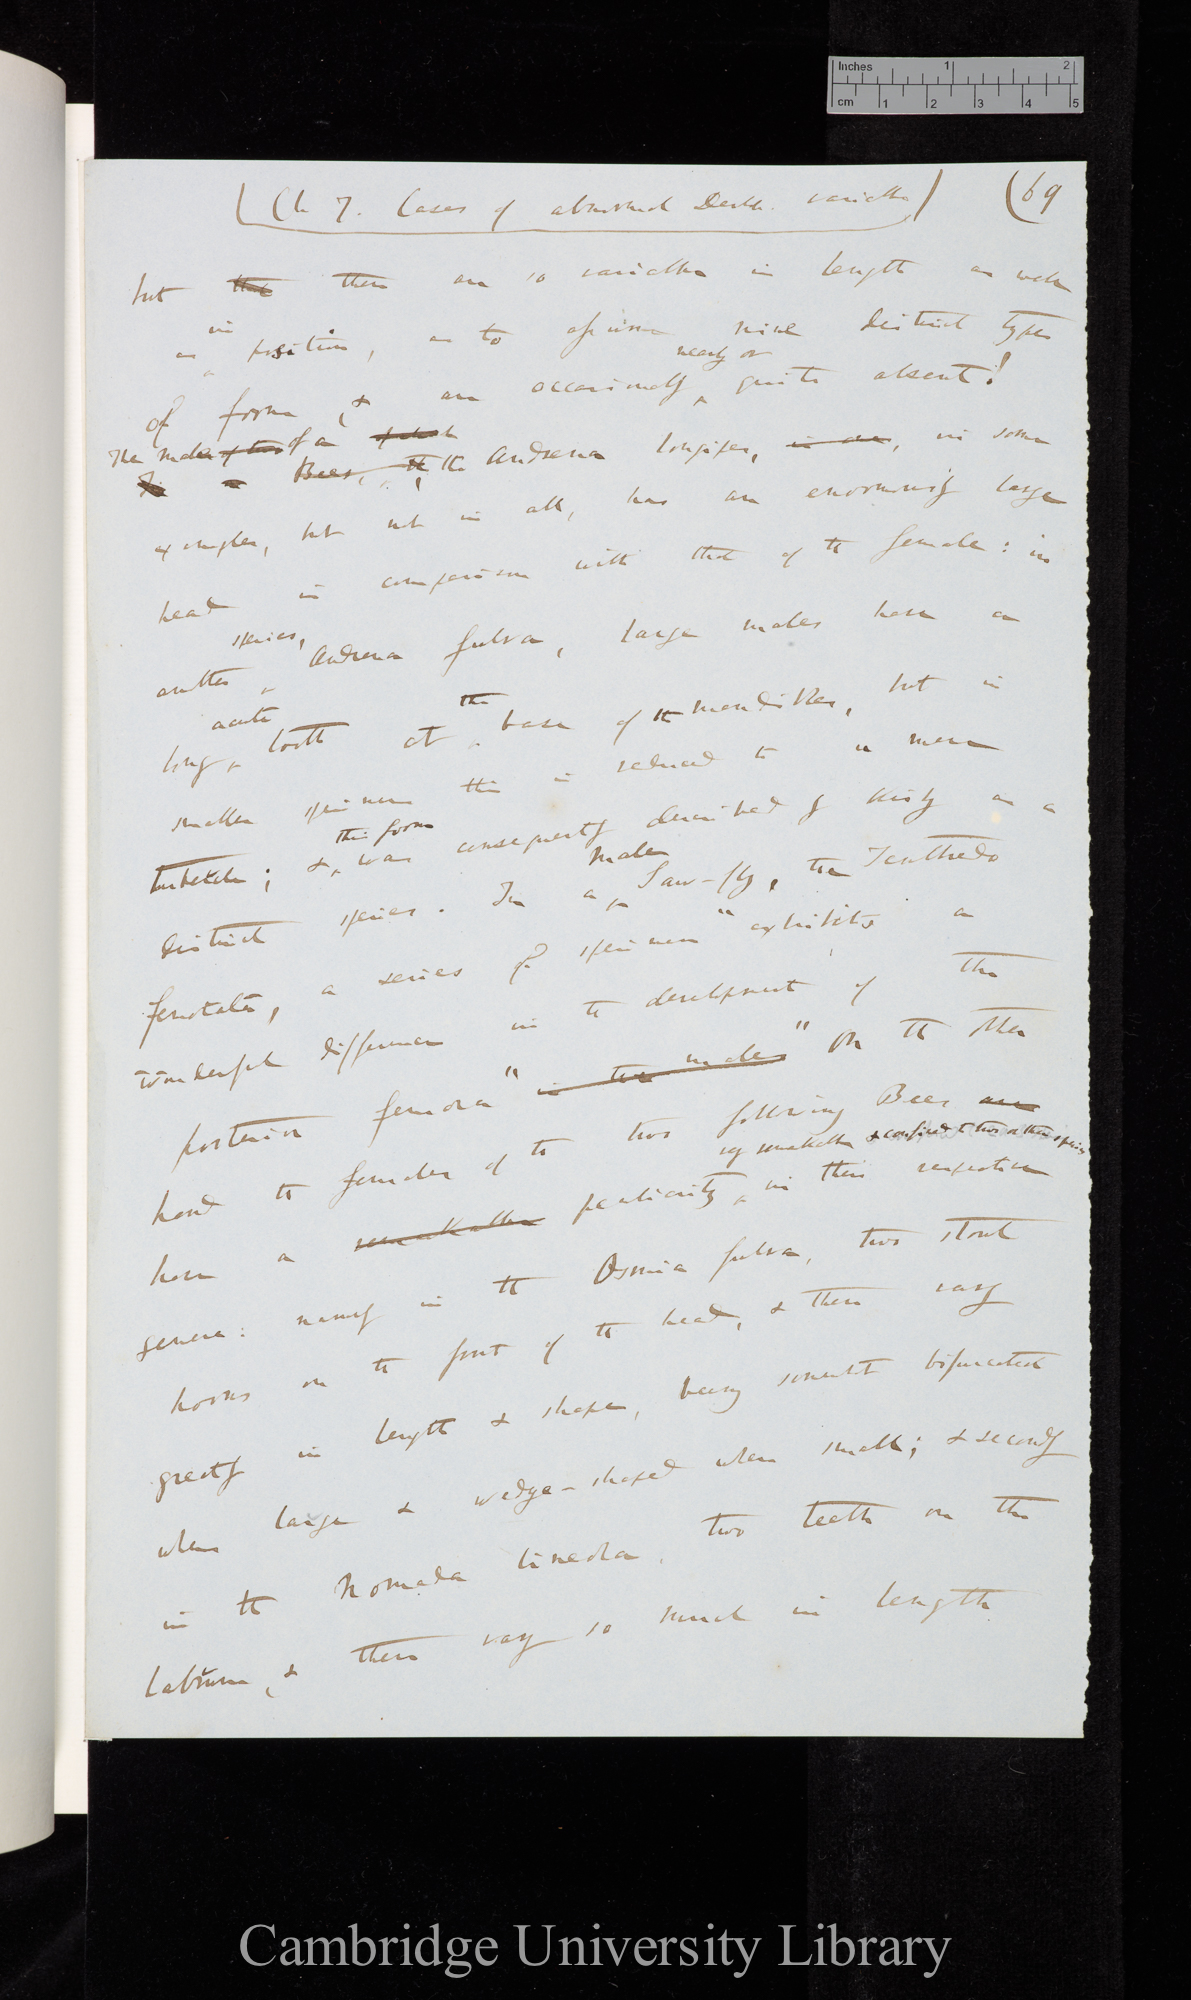 Inches 1 2
cm 1 2 3 4 5
(Ch 7. Cases of abnormal Devel. variable) (69
but that these are so variable in length as well
as in position, as to afford nine distinct types
of form, & are occasionally nearly or quite absent!
The male of a Bee, the Andrena longipes, in some
examples, but not in all, has an enormously large
head in comparison with that of the female: in
another species, Andrena fulva, large males have a
long acute tooth at the base of the mandibles, but in
smaller specimens this is reduced to a mere
tubercle; & this form was consequently described by Kirby as a
distinct species. In a male Saw-fly, the Tenthredo
femorata, a series of specimens "exhibits a
wonderful difference in the development of the
posterior femora" in the males" On the other
hand the females of the two following Bees are
have a remarkable peculiarity, very remarkable & confined to two or three species in their respective
genera: namely in the Osmia fulva, two stout
horns on the front of the head, & these vary
greatly in length & shape, being somewhat bifurcated
when large & wedge-shaped when small; & secondly
in the Nomada lineola, two teeth on the
labrum, & these vary so much in length
Cambridge University Library